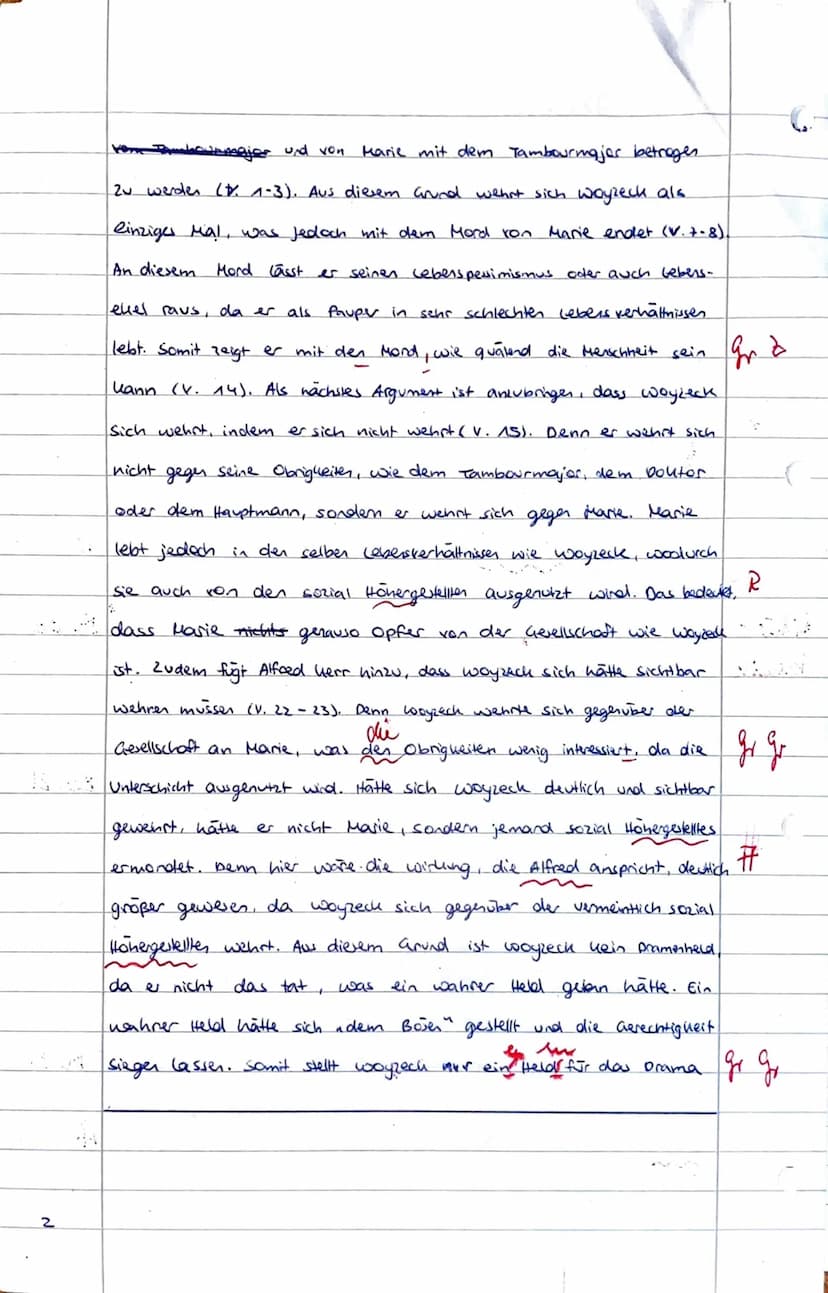 vom Tambourmajor und von Marie mit dem Tambourmajor betrogen
zu werden (V. 1-3). Aus diesem Grund wehrt sich Woyzeck als
einziges Mal, was jedoch mit dem Mord von Marie endet (V. 7-8).
An diesem Mord lässt er seinen Lebenspessimismus oder auch Lebens-
ekel raus, da er als Pauper in sehr schlechten Lebensverhältnissen
lebt. Somit zeigt er mit den Mord, wie quälend die Menschheit sein gr Z
kann (V. 14). Als nächstes Argument ist anzubringen, dass Woyzeck
sich wehrt, indem er sich nicht wehrt (V. 15). Denn er wehrt sich
nicht gegen seine Obrigkeiten, wie dem Tambourmajor, dem Doktor
oder dem Hauptmann, sondern er wehrt sich gegen Marie. Marie
lebt jedoch in den selben Lebensverhältnissen wie Woyzeck, wodurch
sie auch von den sozial Höhergestellten ausgenutzt wird. Das bedeutet, R
dass Marie nichts genauso Opfer von der Gesellschaft wie Woyzeck
ist. Zudem fügt Alfred Kerr hinzu, dass Woyzeck sich hätte sichtbar
wehren müssen (V. 22-23). Denn Woyzeck wehrte sich gegenüber der
die
Gesellschaft an Marie, was den Obrigkeiten wenig interessiert, da die gr gr
Unterschicht ausgenutzt wird. Hätte sich Woyzeck deutlich und sichtbar
gewehrt, hätte er nicht Marie, sondern jemand sozial Höhergestelltes
ermordet. Denn hier wäre die Wirkung, die Alfred anspricht, deutlich
größer gewesen, da Woyzeck sich gegenüber der vermeintlich sozial
Höhergestellten wehrt. Aus diesem Grund ist Woyzeck kein Dramenheld,
da er nicht das tat, was ein wahrer Held getan hätte. Ein
wahrer Held hätte sich „dem Bösen“ gestellt und die Gerechtigkeit
en
siegen lassen. Somit stellt Woyzeck nur ein Held für das Drama gr gr
2